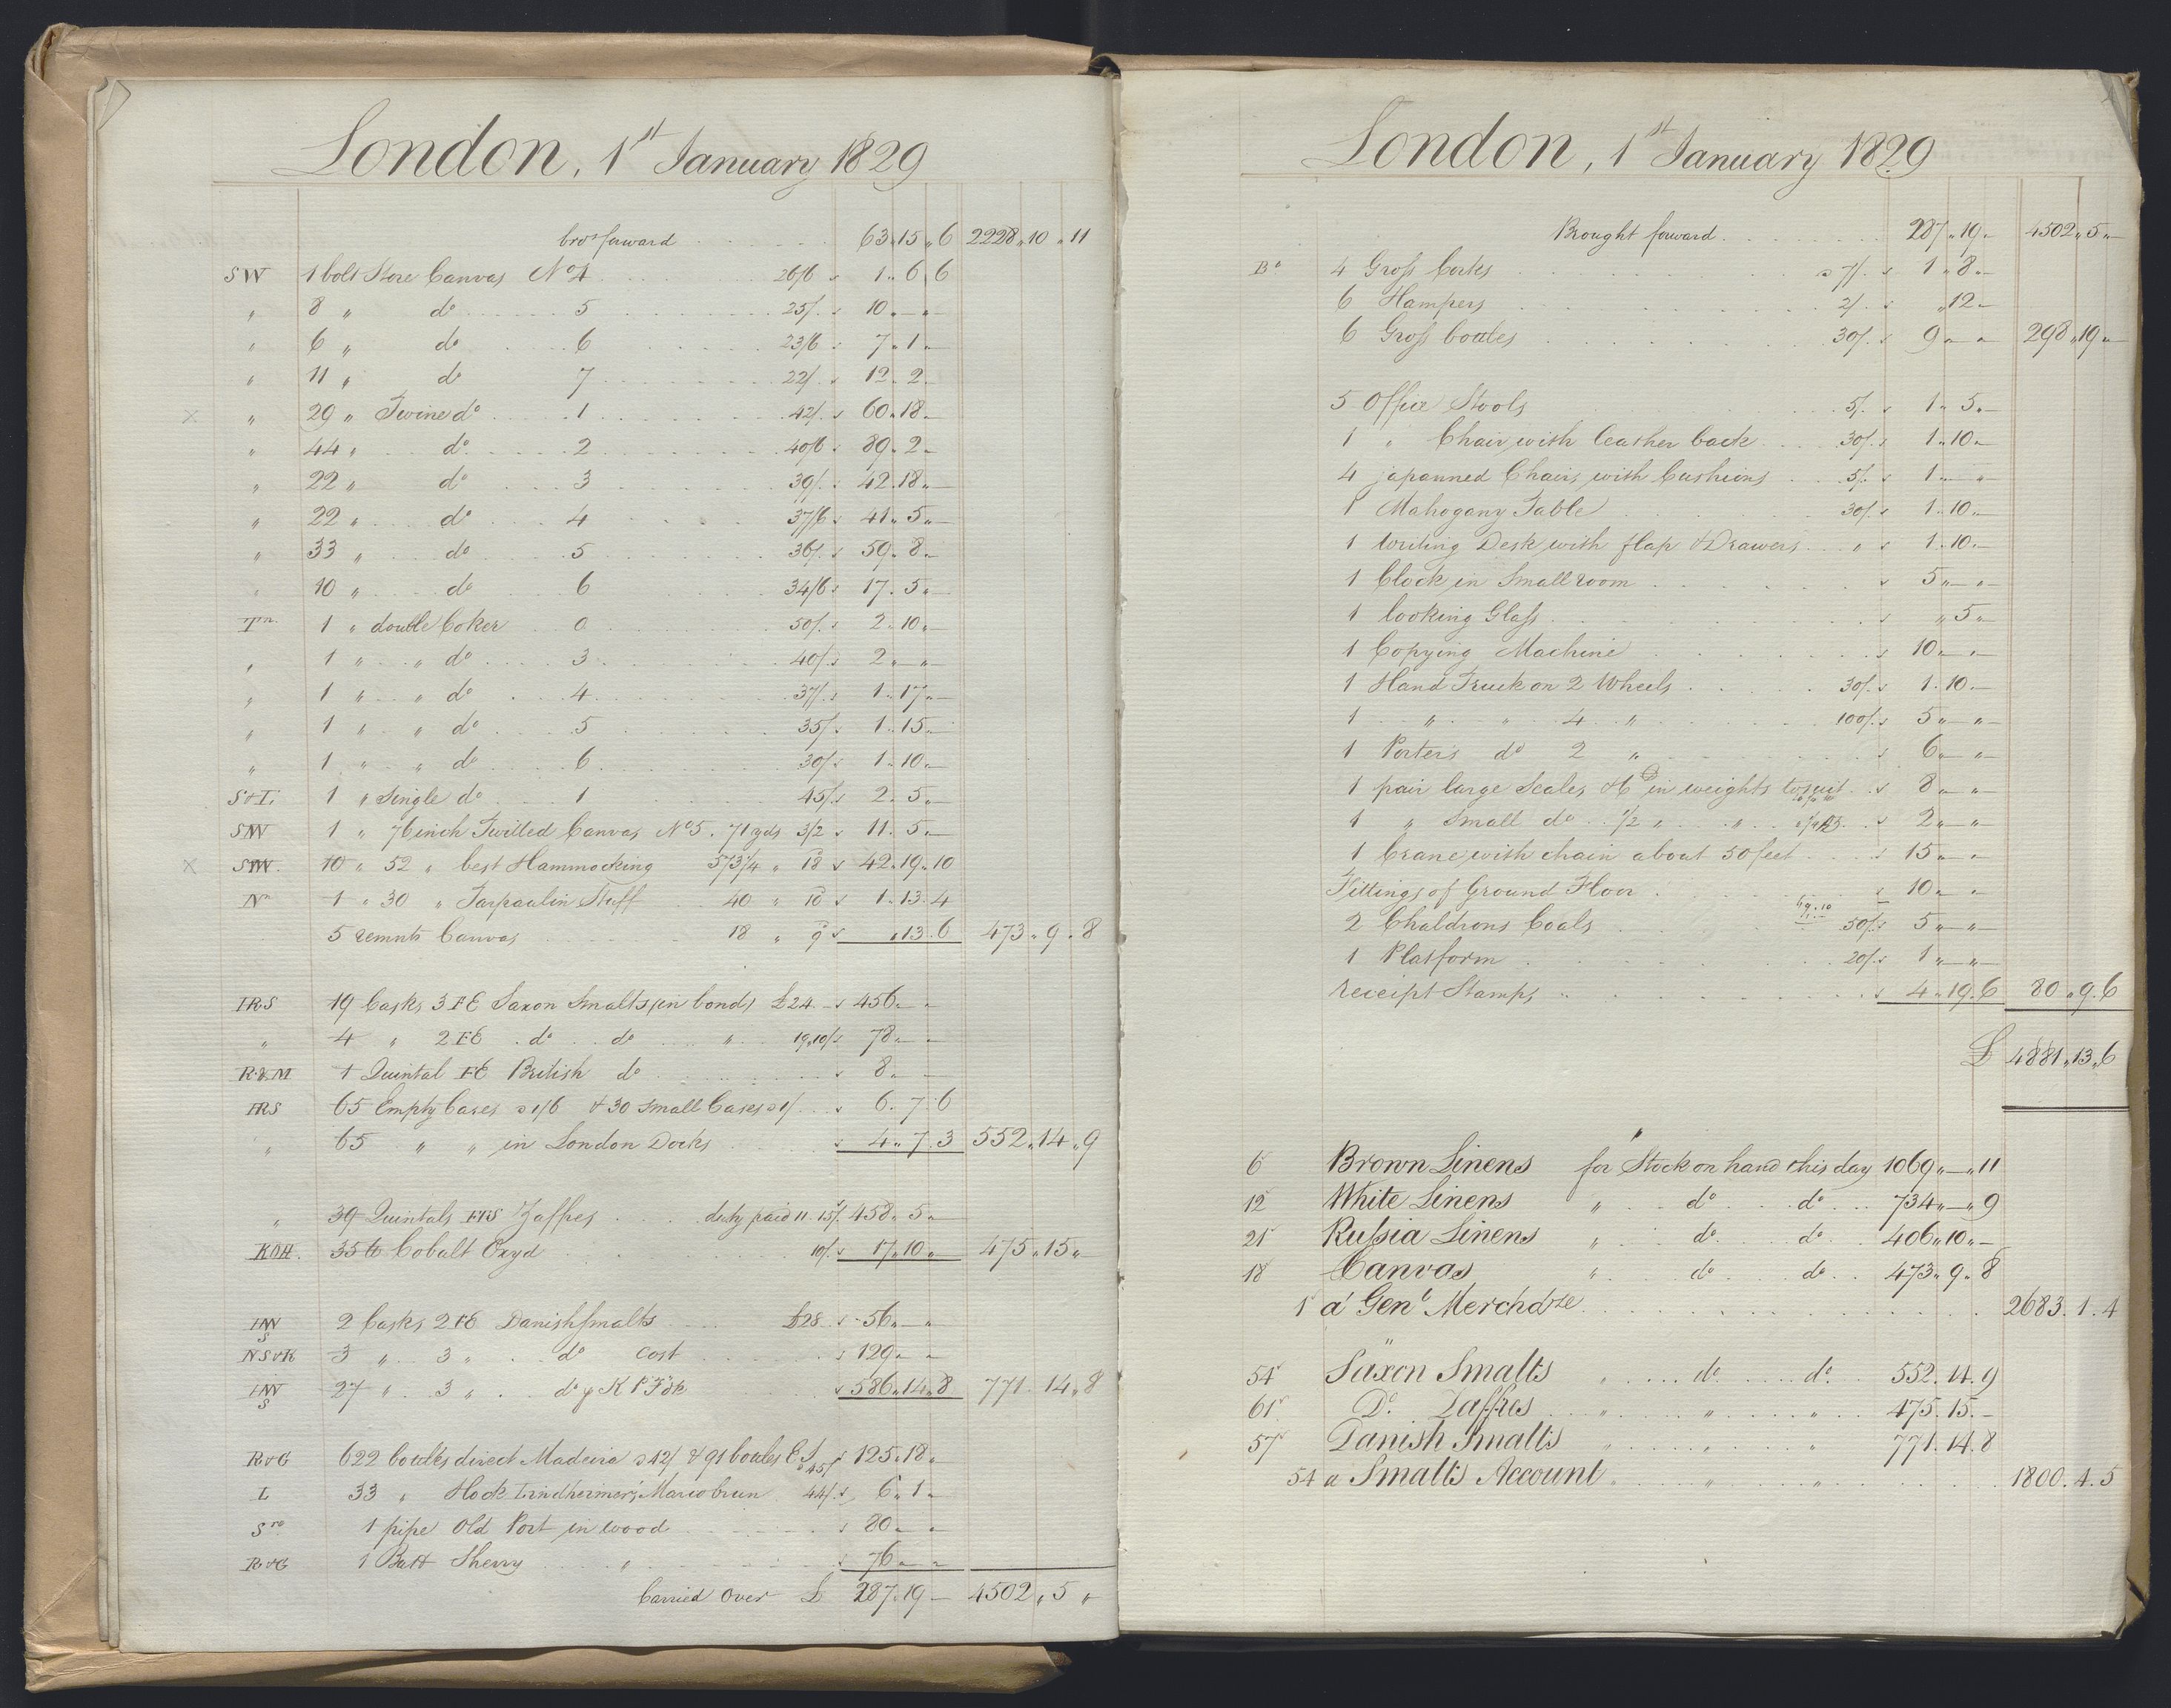 London, 1st January 1829
bro't forward 63 " 15 " 6 2228 " 10 " 11
SW 1 bolt Store Canvas No 4 26/6 1 " 6 6
" 8 " do 5 25/. 10 " — "
" 6 " do 6 23/6 7 " 1 "
" 11 " do 7 22/. 12 " 2 —
x " 29 " Twine do 1 42/. 60 " 18 —
" 44 " do 2 40/6 89 " 2 —
" 22 " do 3 39/. 42 " 18 " —
" 22 " do 4 37/6 41 " 5 " —
" 33 " do 5 36/. 59 " 8 —
" 10 " do 6 34/6 17 " 5 " —
Tn 1 " double Coker 0 50/. 2 " 10 " —
" 1 " " do 3 40/. 2 " — "
" 1 " " do 4 37/. 1 " 17 " —
" 1 " " do 5 35/. 1 " 15 —
" 1 " " do 6 30/. 1 " 10 —
S&I. 1 " Single do 1 45/. 2 " 5 " —
SW 1 " 76 inch Twilled Canvas No 5. 71 yds 3/2 11 " 5 —
x SW. 10 " 52 " best Hammocking 573 1/4 " 18 42 " 19 " 10
Nn 1 " 30 " Tarpaulin Stuff 40 " 10 1 " 13 " 4
5 remnts Canvas 18 " 9 " 13 " 6 473 " 9 " 8
IRS 19 Casks 3 FE Saxon Smalts (in bond) £24 — 456 " "
" 4 " 2 FE do do " 19.10/. 78 " —
R&M 1 Quintal FE British do 8 " —
IRS 65 Empty Cases a 1/6 & 30 small Cases a 1/ 6 " 7 " 6
" 65 " " in London Docks 4 " 7 " 3 552 " 14 " 9
" 39 Quintals FFS Zaffres duty paid 11. 15/. 458 " 5 " —
KOH. 35 lb Cobalt Oxyd 10/. 17 " 10 " 475 " 15 "
2 Casks 2 FE Danish Smalts £28 56 " — "
NS&K 3 " 3 " do Cost 129 " "
27 " 3 " do 586 " 14 " 8 771 " 14 " 8
R&G 622 bottles direct Madeira a 42/ & 91 bottles E I a 45/ 125 " 18 "
I 33 " Hock Marcobrun 44/. 6 " 1 "
Sro 1 pipe Old Port in wood 80 " "
R&G 1 Butt Sherry " 76 " —
Carried Over £ 287 " 19 — 4502 " 5 "
London, 1st January 1829
Brought forward 287 " 19 — 4502 " 5 " —
Bo 4 Gross Corks a 7/. 1 " 8 " —
6 Hampers 2/. " 12 —
6 Gross bottles 30/. 9 " " 298 " 19 " —
5 Office Stools 5/. 1 " 5 " —
1 " Chair, with leather back 30/. 1 " 10 " —
4 japanned Chairs with Cushions 5/. 1 " — "
1 Mahogany Table 30/. 1 " 10 " —
1 Writing Desk with flap & Drawers " 1 " 10 " —
1 Clock in Small room 5 " — "
1 looking Glass " 5 " —
1 Copying Machine 10 " — "
1 Hand Truck on 2 Wheels 30/. 1 " 10 —
1 " " 4 " 100/. 5 " — " —
1 Porter's do 2 " 6 " — "
1 pair large Scales & C in weights to suit 8 " — "
1 " Small do 1/2 " " 2 " — "
1 Crane with chain about 50 feet 15 " — "
Fittings of Ground Floor 10 " "
2 Chaldrons Coals 50/. 5 " — " —
1 Platform 20/. 1 " — " —
receipt Stamps " 4 " 19 " 6 80 " 9 " 6
£ 4881 " 13 " 6
6 Brown Linens for Stock on hand this day 1069 " — " 11
12 White Linens " do do 734 " — " 9
21 Russia Linens " do do 406 " 10 " —
18 Canvas " do do 473 " 9 " 8
1 a Genl Merchdze 2683 . 1 . 4
54 Saxon Smalts " do do 552 . 14 . 9
61 Do. Zaffres " " " 475 . 15 . —
57 Danish Smalts " " " 771 . 14 . 8
54 a Smalts Account " " " 1800 . 4 . 5